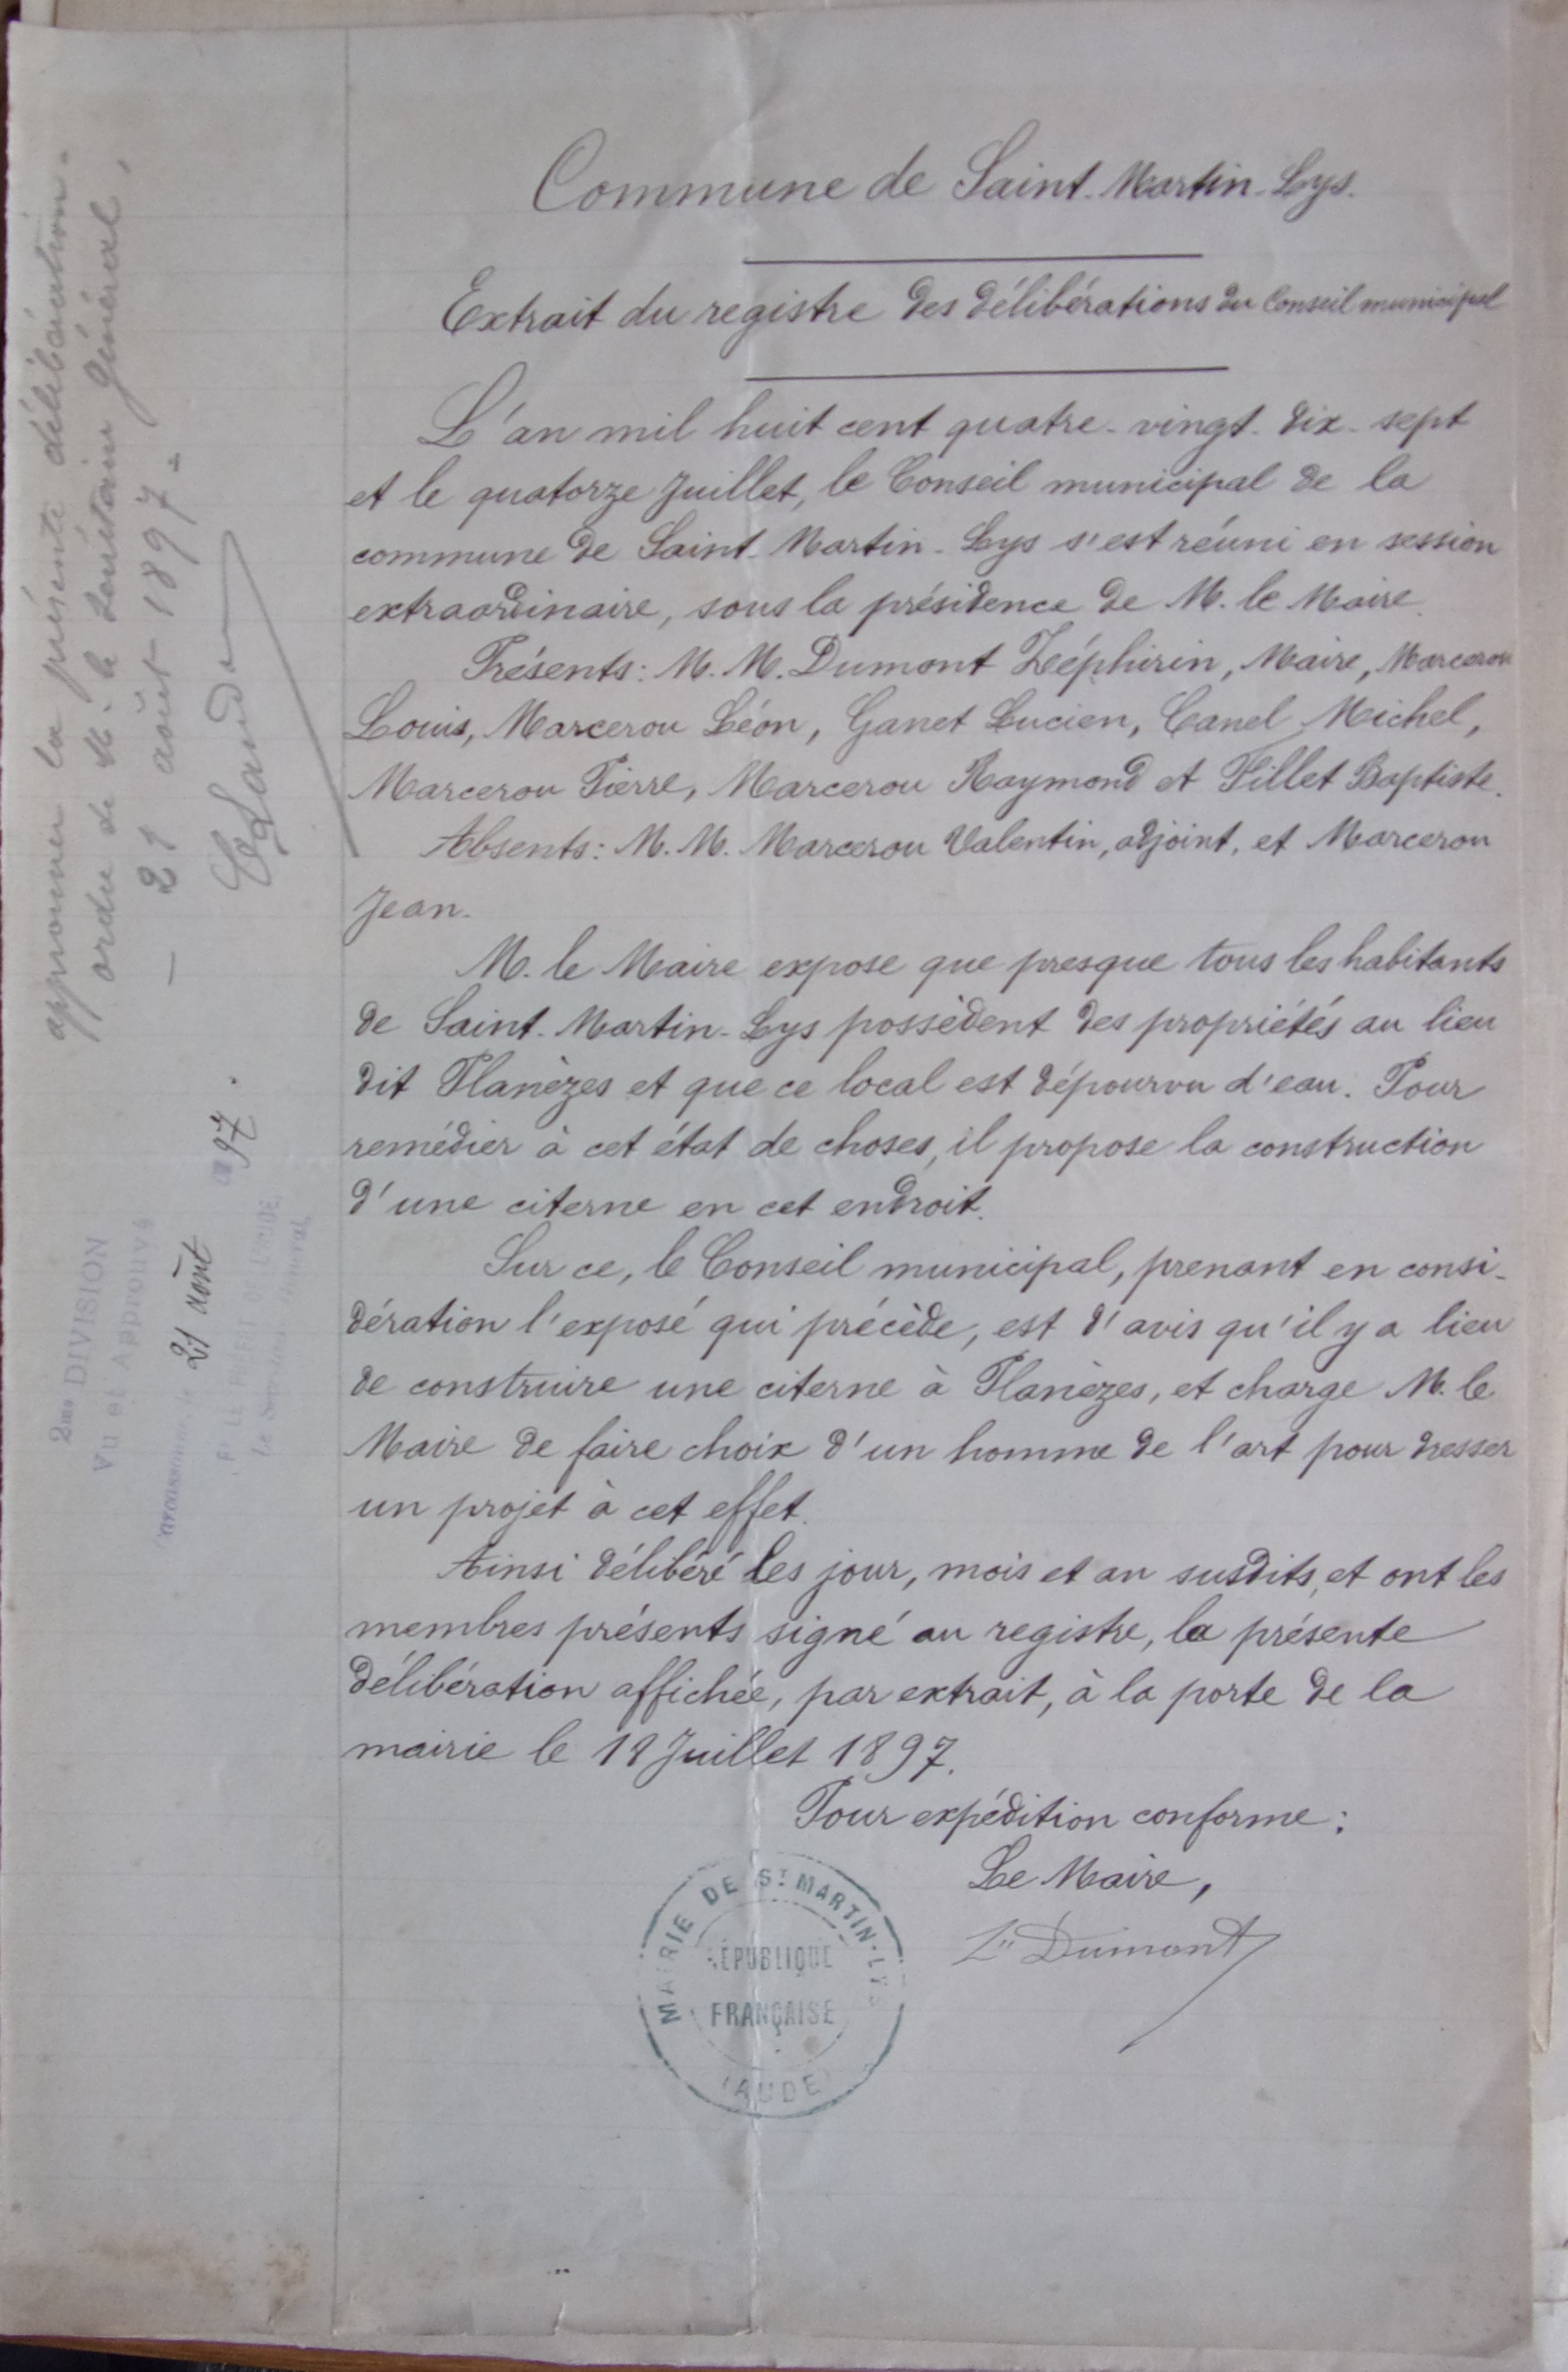 Commune de Saint-Martin-Lys.
Extrait du registre des délibérations du Conseil municipal
L'an mil huit cent quatre-vingt-dix-sept
et le quatorze Juillet, le Conseil municipal de la
commune de Saint-Martin-Lys s'est réuni en session
extraordinaire, sous la présidence de M. le Maire.
Présents: M. M. Dumont Zéphirin, Maire, Marcerou
Louis, Marcerou Léon, Ganet Lucien, Canel Michel,
Marcerou Pierre, Marcerou Raymond et Pillet Baptiste.
Absents: M. M. Marcerou Valentin, adjoint, et Marcerou
Jean.
M. le Maire expose que presque tous les habitants
de Saint-Martin-Lys possèdent des propriétés au lieu
dit Planèzes et que ce local est dépourvu d'eau. Pour
remédier à cet état de choses, il propose la construction
d'une citerne en cet endroit.
Sur ce, le Conseil municipal, prenant en consi-
dération l'exposé qui précède, est d'avis qu'il y a lieu
de construire une citerne à Planèzes, et charge M. le
Maire de faire choix d'un homme de l'art pour dresser
un projet à cet effet.
Ainsi délibéré les jour, mois et an susdits, et ont les
membres présents signé au registre, la présente
délibération affichée, par extrait, à la porte de la
mairie le 18 Juillet 1897.
Pour expédition conforme:
Le Maire,
Zin Dumont
MAIRIE DE ST MARTIN-LYS
RÉPUBLIQUE
FRANÇAISE
(AUDE)
approuver la présente délibération.
ordre de M. le Secrétaire Général,
— 21 août 1897 -
2me DIVISION
Vu et Approuvé
21 août 97.
P. LE PRÉFET DE L'AUDE,
Le Secrétaire Général,